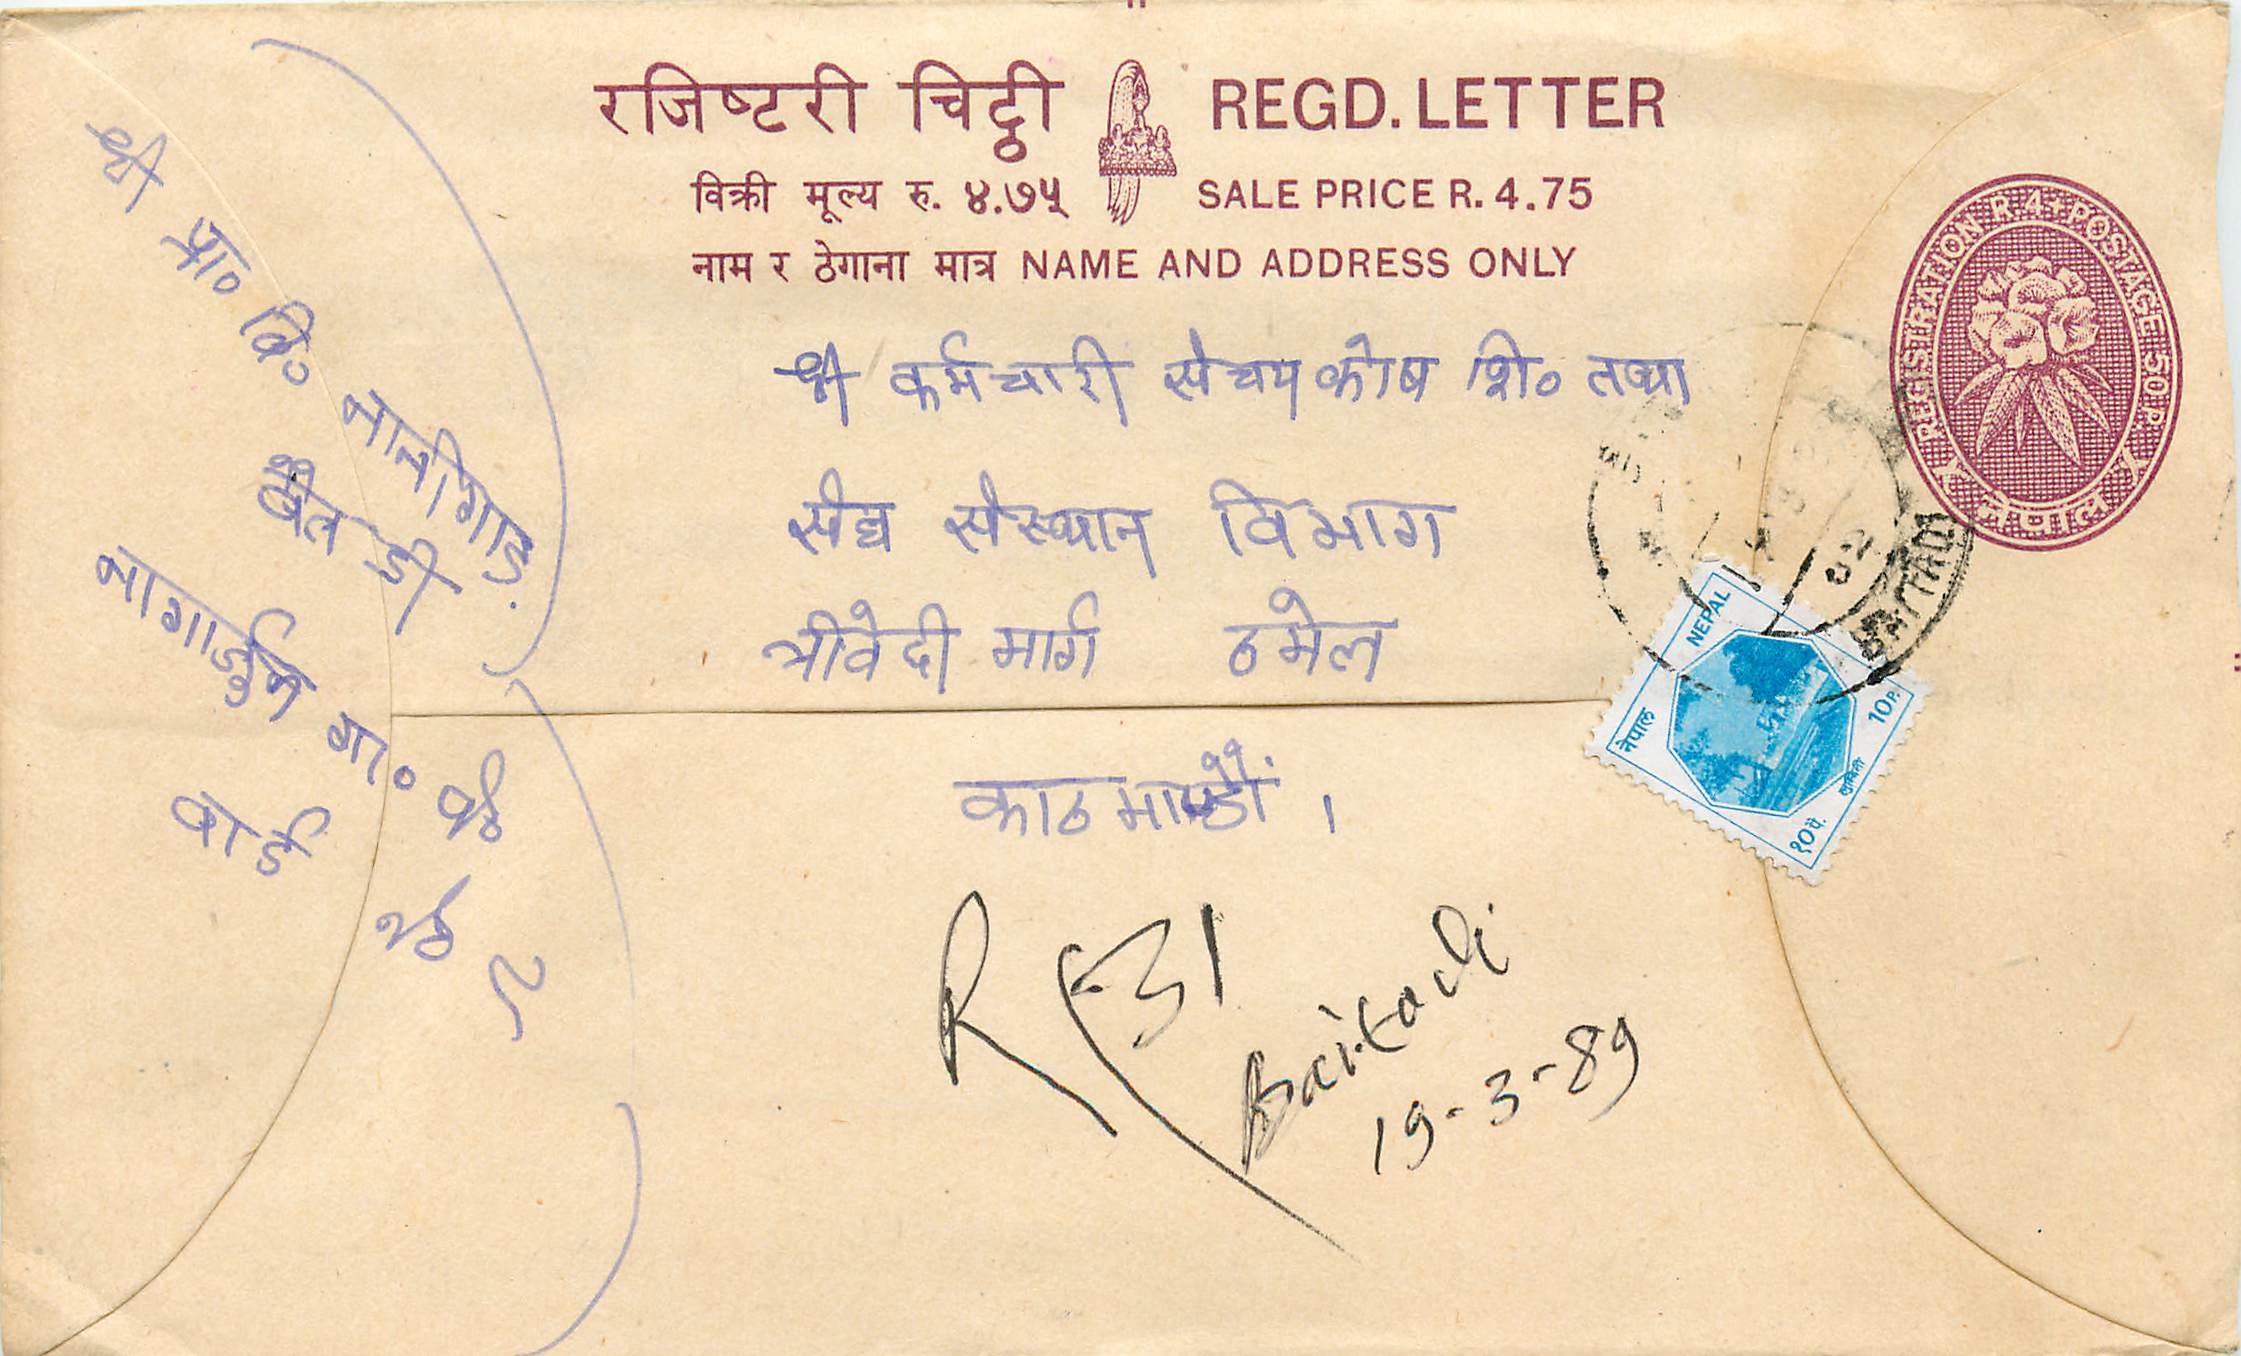 रजिष्टरी चिट्ठी REGD. LETTER
विक्री मूल्य रु. ४.७५ SALE PRICE R. 4.75
नाम र ठेगाना मात्र NAME AND ADDRESS ONLY
REGISTRATION R.4+POSTAGE 50 P.
नेपाल
श्री कर्मचारी संचयकोष शि० तथा
संघ संस्थान विभाग
त्रीवेदी मार्ग ठमेल
काठमाण्डौं ।
श्री प्रा० वि० मालीगाड
बैतडी
नागार्जुन गा० पं०
वार्ड नं० ८
NEPAL
नेपाल
10 P.
१० पै.
लुम्बिनी
BAITADI
R 31
Baitadi
19-3-89